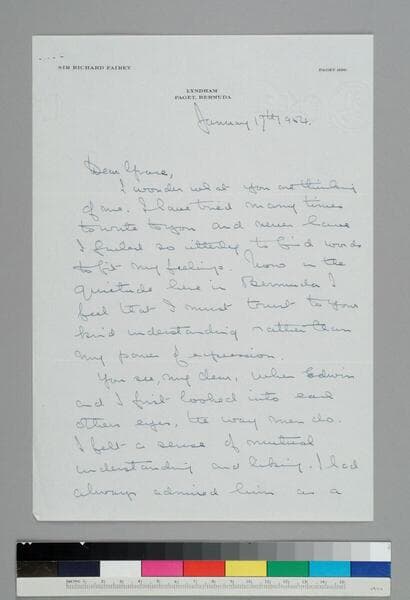 SIR RICHARD FAIREY
LYNDHAM
PAGET, BERMUDA
January 17th 1954.
Dear Grace,
I wonder what you are thinking
of me. I have tried many times
to write to you and never have
I failed so utterly to find words
to fit my feelings. Now in the
quietude here in Bermuda I
feel that I must trust to your
kind understanding rather than
my power of expression.
You see, my dear, when Edwin
and I first looked into each
others eyes, the way men do.
I felt a sense of mutual
understanding and liking. I had
always admired him as a